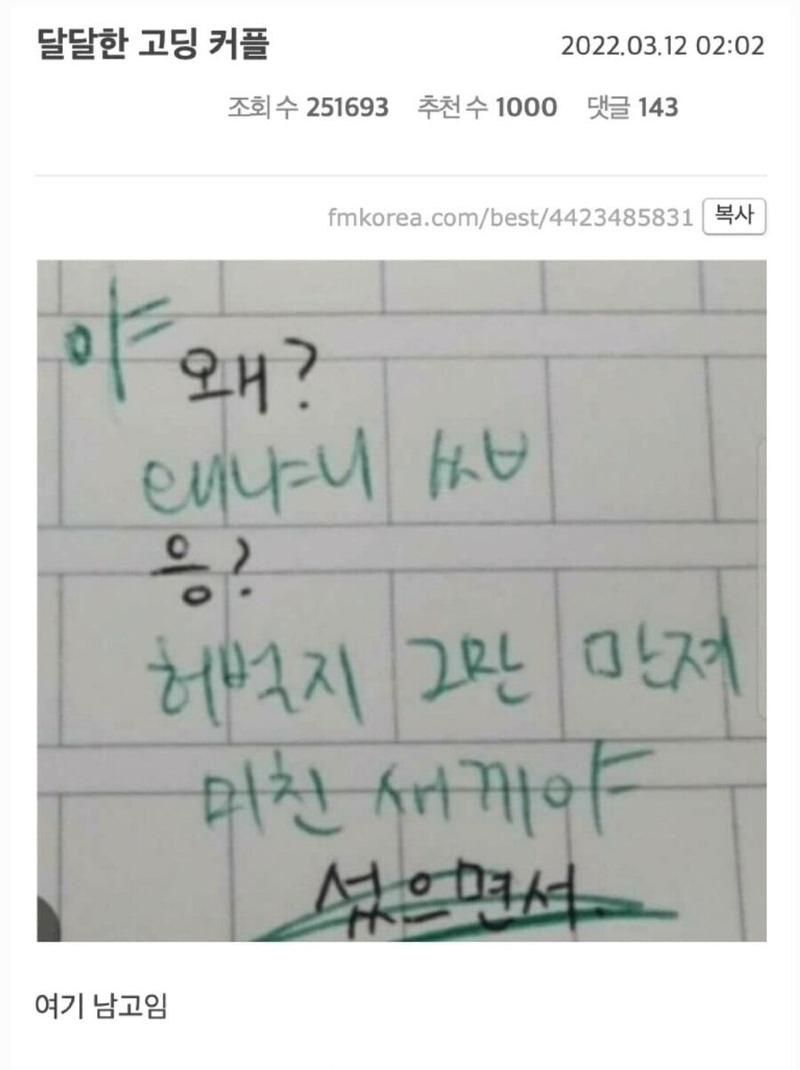 달달한 고딩 커플
2022.03.12 02:02
조회 수 251693 추천 수 1000 댓글 143
fmkorea.com/best/4423485831 복사
야
왜?
씨ㅂ
응?
허벅지 그만 만져
미친 새끼야
섰으면서.
여기 남고임